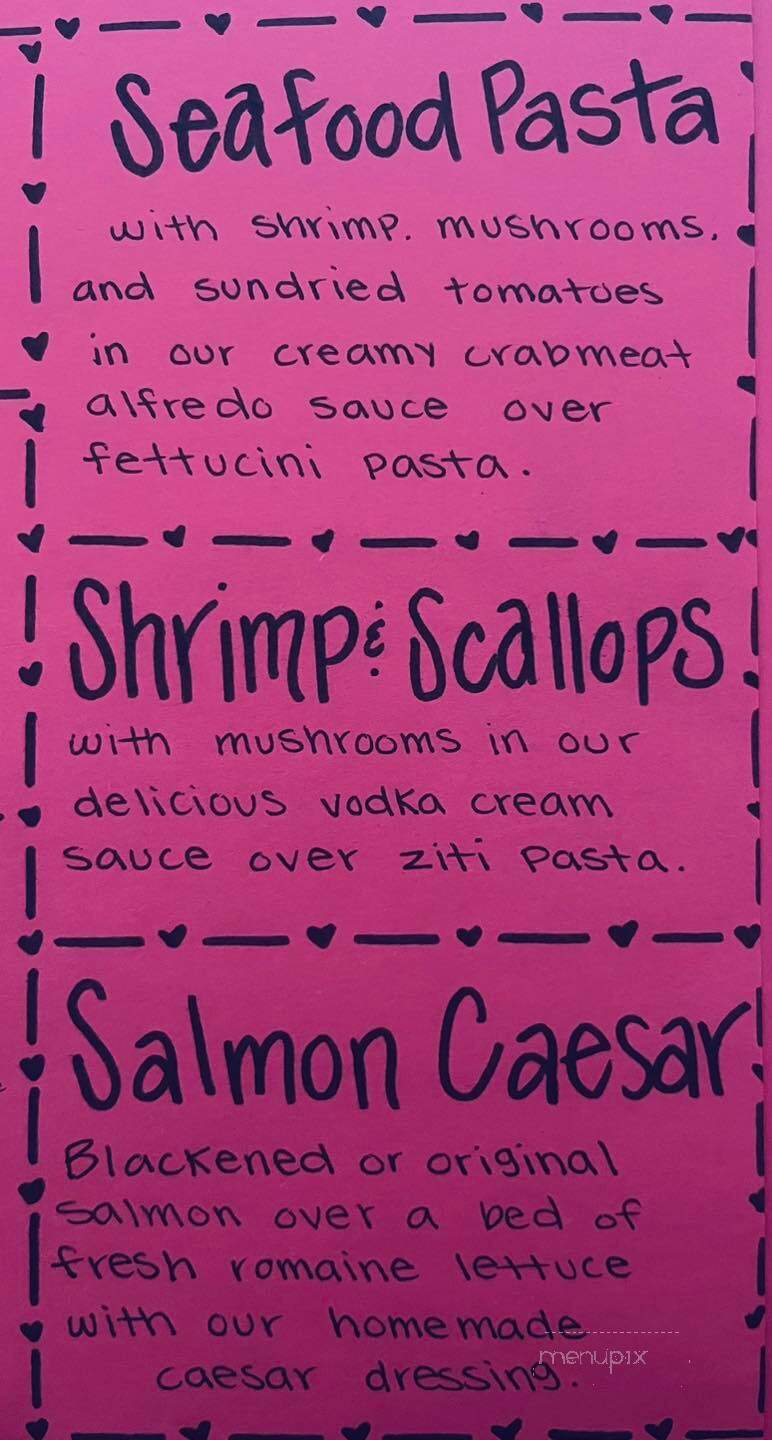 Seafood Pasta
with shrimp, mushrooms,
and sundried tomatoes
in our creamy crabmeat
alfredo sauce over
fettucini pasta.
Shrimp & Scallops
with mushrooms in our
delicious vodka cream
sauce over ziti pasta.
Salmon Caesar
Blackened or original
salmon over a bed of
fresh romaine lettuce
with our homemade
caesar dressing.
menupix